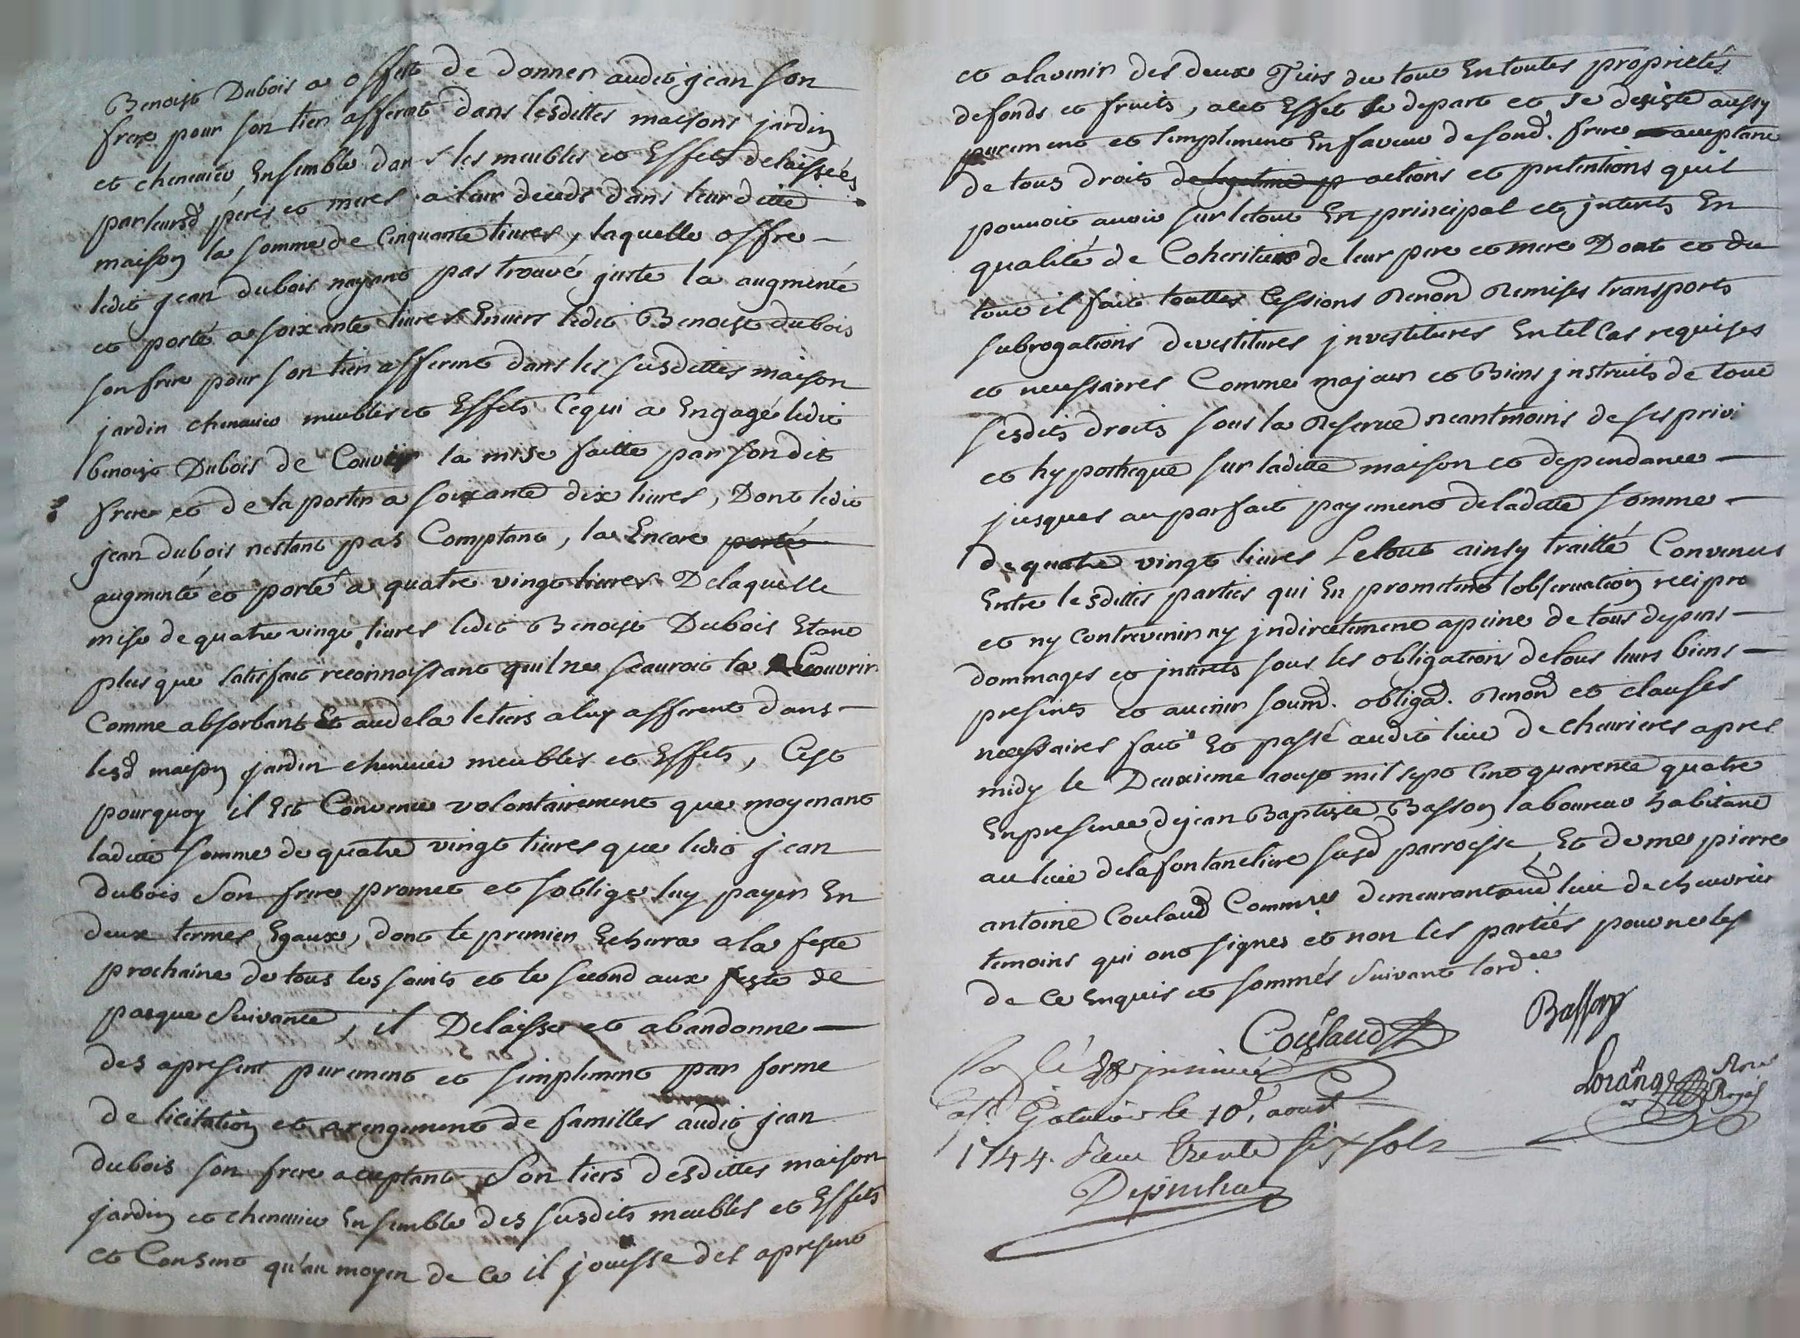 Benoist Dubois a offert de donner audit jean son
frere pour son tier afferant dans lesdittes maisons jardin
et cheneuier, Ensemble dans les meubles et Effets delaissées
par leursd. peres et meres a leur deceds dans leur ditte
maison la somme de Cinquante liures, laquelle offre
ledit jean dubois nayant pas trouvé juste la augmenté
et porté a soixante liures Enuers ledit Benoist dubois
son frere pour son tier afferent dans les susdittes maison
jardin cheneuier meubles et Effets Cequi a Engagé ledit
benoist Dubois de Couvrir la mise faitte par son dit
frere et de la porter a soixante dix liures, Dont ledit
jean dubois nestant pas Comptant, la Encore porté
augmenté et porté a quatre vingt liures Delaquelle
mise de quatre vingt liures ledit Benoist Dubois Etant
plus que satisfait reconnoissant quil ne scauroit la Recouvrir
Comme absorbant Et audela le tiers a luy afferent dans
lesd maison jardin cheneuier meubles et Effets, Cest
pourquoy il Est Convenu volontairement que moyenant
laditte somme de quatre vingt liures que ledit jean
dubois Son frere promet et soblige luy payer En
deux termes Egaux, dont le premier Echerra a la feste
prochaine de tous les saints et le second aux feste de
pasque Suivante, il Delaisse et abandonne
des apresent purement et simplement par forme
de licitation et arengement de familles audit jean
dubois son frere aceptant Son tiers desdittes maison
jardin et cheneuier Ensemble des susdits meubles et Effets
et Consent qu'au moyen de Ce il jouisse des apresent
et alavenir des deux Tiers du tout En toutes proprietés
de fonds et fruits, acet Effet se depart et se desiste aussy
purement et simplement En faveur de sond. frere aceptant
de tous droits de legitime p actions et pretentions quil
pouvoit avoir sur letout En principal et jnterets En
qualité de Coheritiers de leur pere et mere Dont et du
tout il fait touttes Cessions Renond Remises transports
subrogations devestitures jnvestitures En tel Cas requises
et necessaires Comme majeur et Biens jnstruits de tout
sesdits droits sous la Reserve neantmoins de ses privi
et hypotheque sur laditte maison et dependance
jusques au parfait payement de laditte somme
de quatre vingt liures Letout ainsy traitté Convenus
Entre lesdittes parties qui En promettent lobservation recipro
et ny Contrevenir ny jndirectement apeine de tous depens
dommages et jnterets sous les obligations de tous leurs biens
presents et avenir soumd. obligad. Renond et clauses
necessaires fait Et passé audit lieu de cheurieres apres
midy le Deuxieme aoust mil sept Cent quarente quatre
En presence de jean Baptiste Basson laboureur habitant
au lieu de la fontaneliere susd parroisse Et de me pierre
antoine Coulaud Commre demeurant aud. lieu de cheurier
temoins qui ont signes et non les parties pour ne les
de Ce Enquis et sommés Suivant lordce
Coulaud
Basson
Lorange Nore Royal
Con lé & jnsinué
a St. Galmier le 10e. aoust
1744. Receu trente six sols